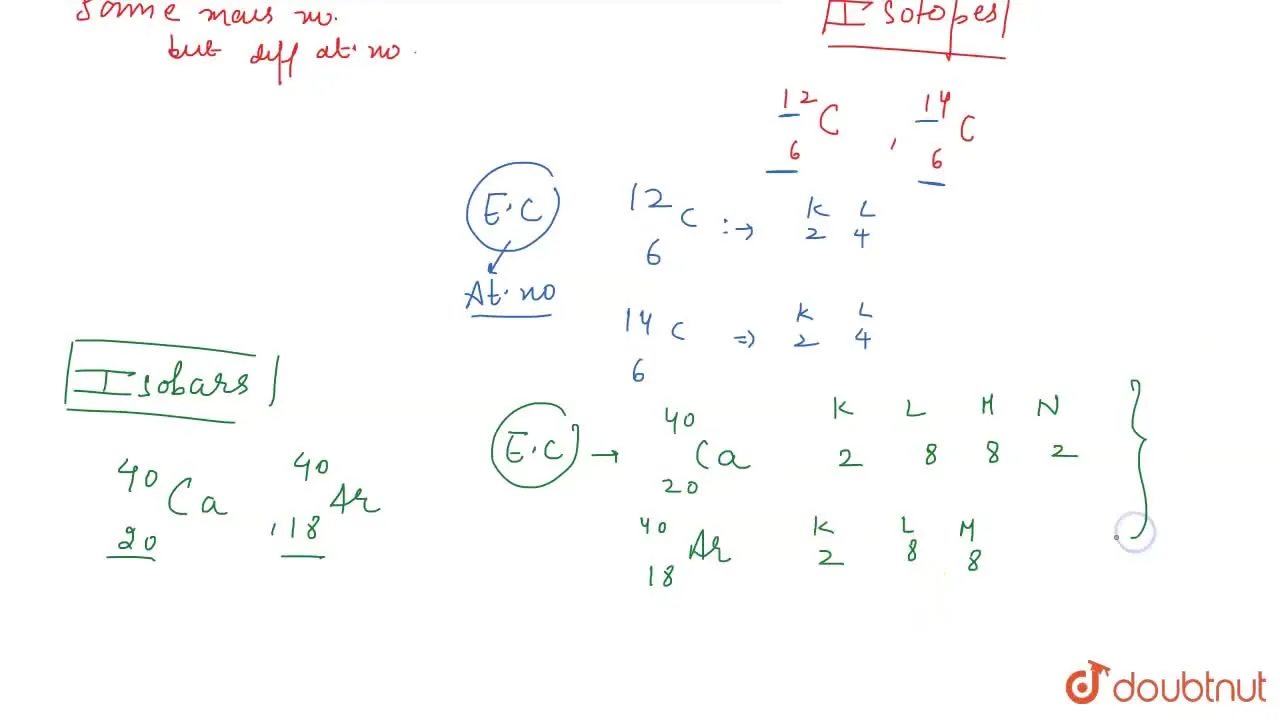 same mass no.
but diff at. no.
Isotopes
12 C 6 , 14 C 6
E.C
At. no
12 C 6 :→ K L
2 4
14 C 6 ⇒ K L
2 4
Isobars
40 Ca 20 , 40 Ar 18
E.C → 40 Ca 20 K L M N
2 8 8 2
40 Ar 18 K L M
2 8 8
doubtnut